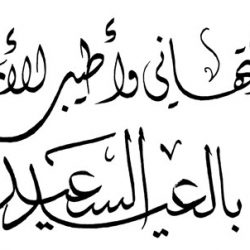 تهاني وأطيب الأ
بالعيد السعيد